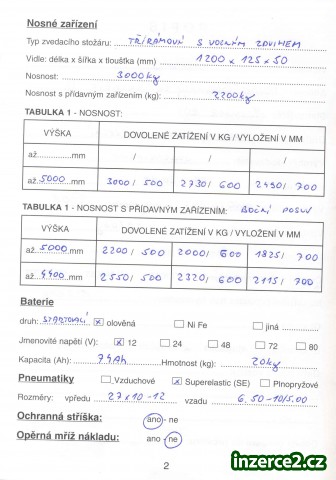 Nosné zařízení
Typ zvedacího stožáru: TŘÍRÁMOVÝ S VOLNÝM ZDVIHEM
Vidle: délka x šířka x tloušťka (mm) 1200 x 125 x 50
Nosnost: 3000kg
Nosnost s přídavným zařízením (kg): 2200kg
TABULKA 1 - NOSNOST:
VÝŠKA DOVOLENÉ ZATÍŽENÍ V KG / VYLOŽENÍ V MM
až..............mm / / /
až 5000 mm 3000 / 500 2730 / 600 2490 / 700
TABULKA 1 - NOSNOST S PŘÍDAVNÝM ZAŘÍZENÍM: BOČNÍ POSUV
VÝŠKA DOVOLENÉ ZATÍŽENÍ V KG / VYLOŽENÍ V MM
až 5000 mm 2200 / 500 2000 / 600 1825 / 700
až 4400 mm 2550 / 500 2320 / 600 2115 / 700
Baterie
druh: STARTOVACÍ x olověná Ni Fe jiná
Jmenovité napětí (V): x 12 24 48 72 80
Kapacita (Ah): 74Ah Hmotnost (kg): 20kg
Pneumatiky Vzduchové x Superelastic (SE) Plnopryžové
Rozměry: vpředu 27x10-12 vzadu 6.50-10/5.00
Ochranná stříška: ano - ne
Opěrná mříž nákladu: ano - ne
2
inzerce2.cz